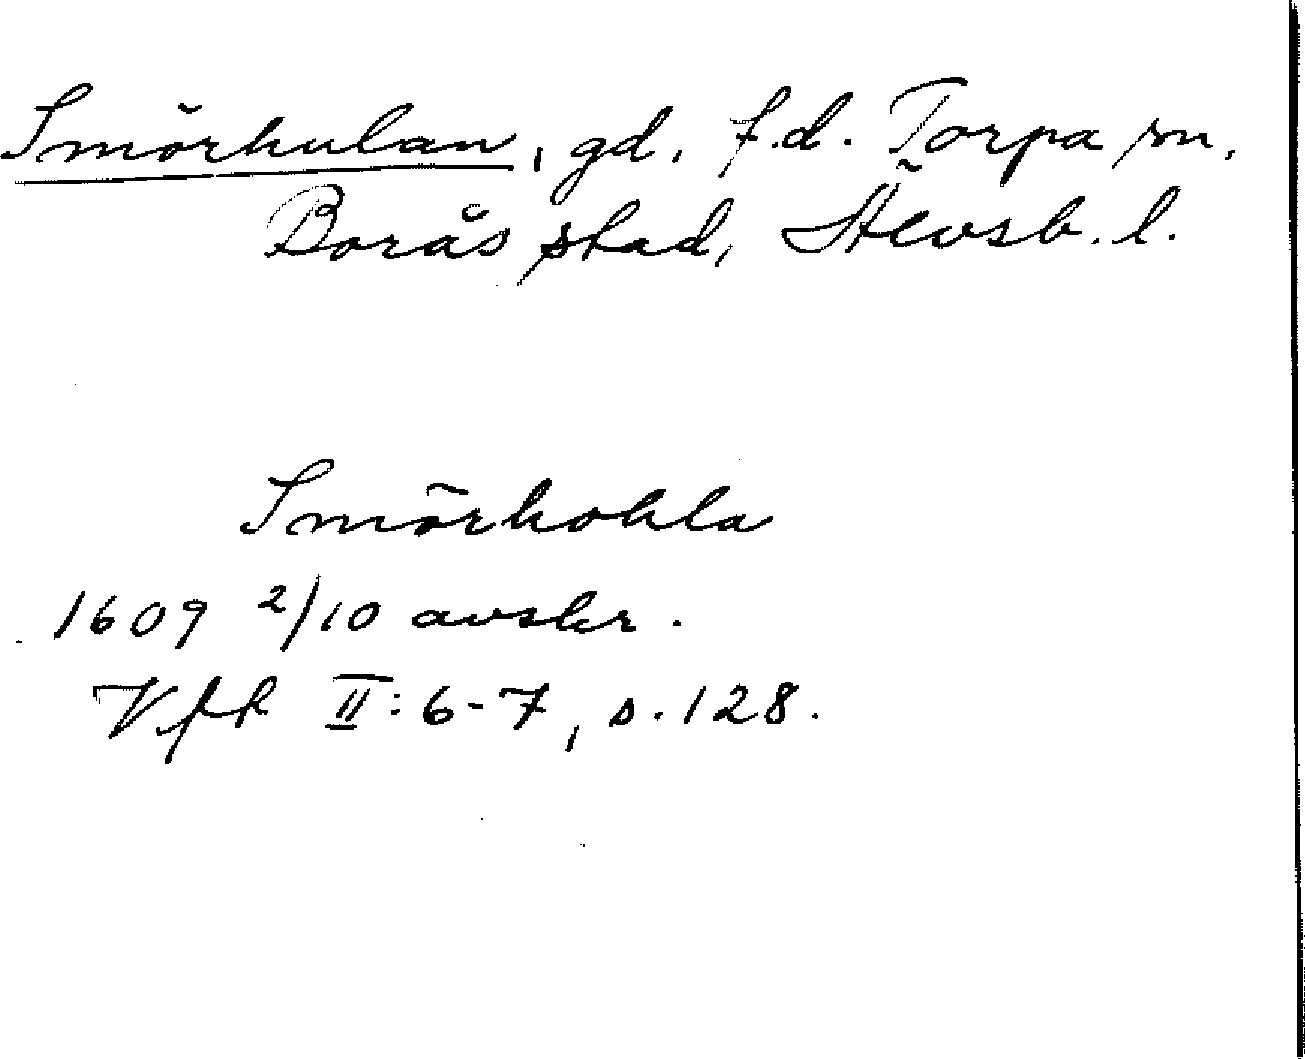 Smörhulan, gd. f.d. Torpa sn,
Borås stad, Älvsb. l.
Smörhohla
1609 2/10 avskr.
Vft II: 6-7, s. 128.